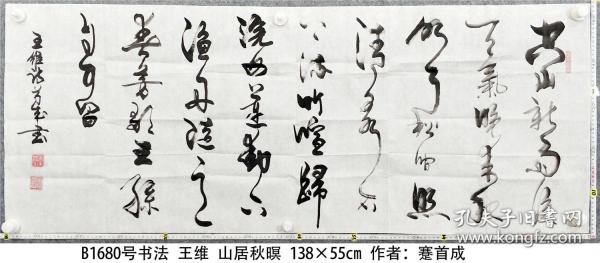 空山新雨後
天氣晚来秋
明月松间照
清泉石
上流竹喧歸
浣女莲動下
渔舟随意
春芳歇王孫
自可留
王维诗首成书
孔夫子旧书网
B1680号书法 王维 山居秋暝 138×55cm 作者：蹇首成